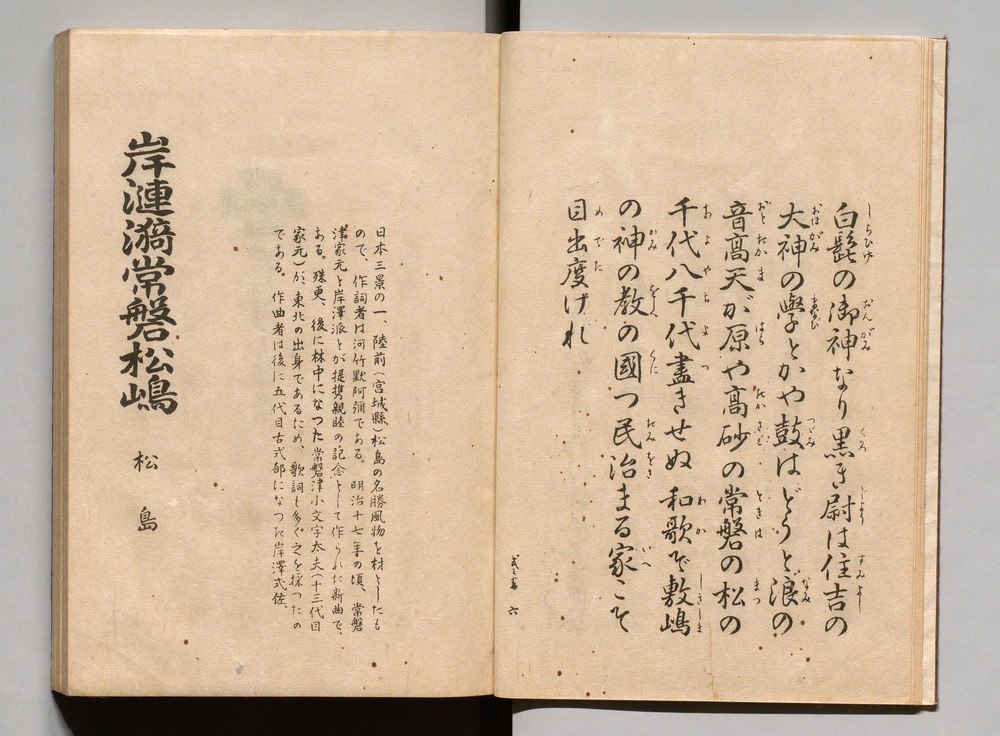 白髭の御神なり黒き尉は住吉の
大神の學とかや鼓はどうと浪の
音高天が原や高砂の常磐の松の
千代八千代盡きせぬ和歌で敷嶋
の神の教の國つ民治まる家こそ
目出度けれ
六
日本三景の一、陸前(宮城縣)松島の名勝風物を材としたも
ので、作詞者は河竹默阿彌である。明治十七年の頃、常磐
津家元と岸澤派とが提携親睦の記念として作られた新曲で、
ある。殊更、後に林中になつた常磐津小文字太夫(十三代目
家元)が、東北の出身であるため、歌詞も多く之を採つたの
である。作曲者は後に五代目古式部になつた岸澤式佐。
岸漣漪常磐松嶋 松島